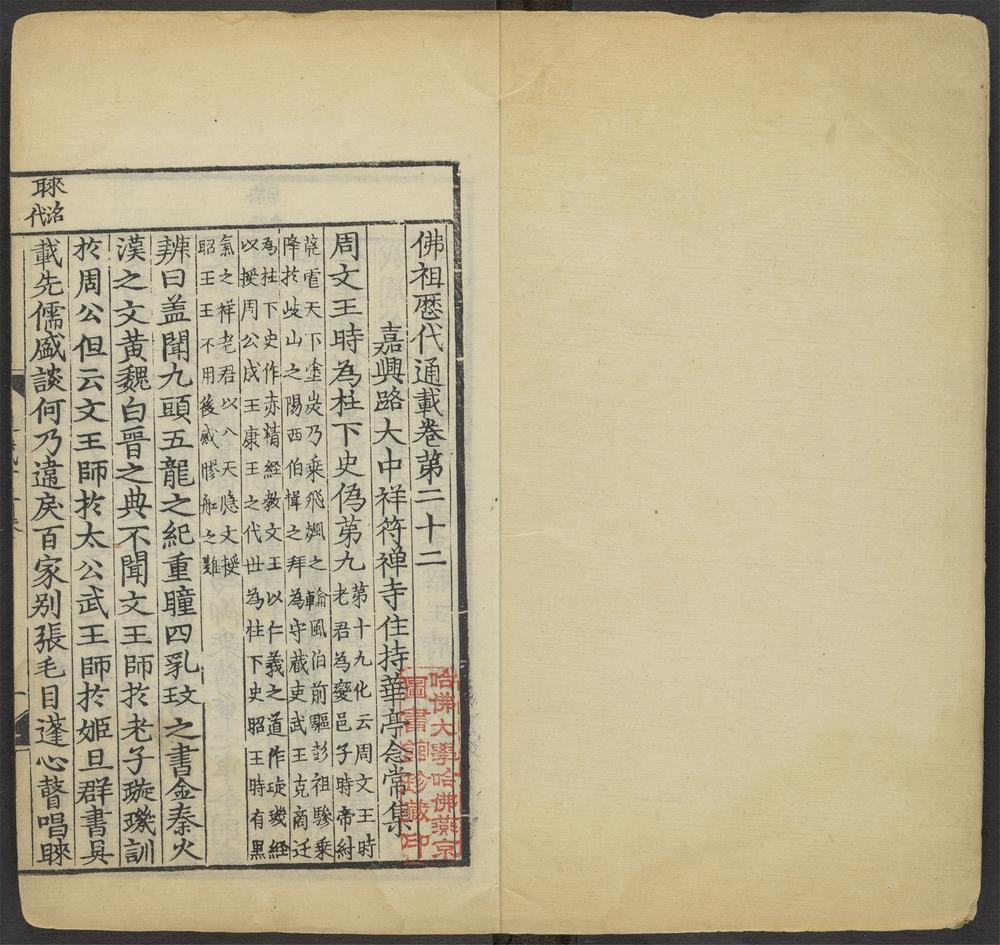 佛祖歷代通載卷第二十二
嘉興路大中祥符禅寺住持華亭念常集
周文王時為柱下史偽第九
第十九化云周文王時
老君為變邑子時帝紂
荒虐天下塗炭乃乘飛飊之輪風伯前驅彭祖驂乗
降於岐山之陽西伯楫之拜為守蔵吏武王克商迁
為柱下史作赤精経教文王以仁義之道作琁璣経
以授周公成王康王之代世為柱下史昭王時有黒
氣之祥老君以八天隐文授
昭王王不用後感膠舡之難
辨曰盖聞九頭五龍之紀重瞳四乳玟之書金秦火
漢之文黄魏白晉之典不聞文王師於老子璇璣訓
於周公但云文王師於太公武王師於姬旦群書具
載先儒盛談何乃違戾百家别張毛目蓬心瞽唱睞
睞
洺
代
哈佛大學哈佛燕京
圖書館珍藏印